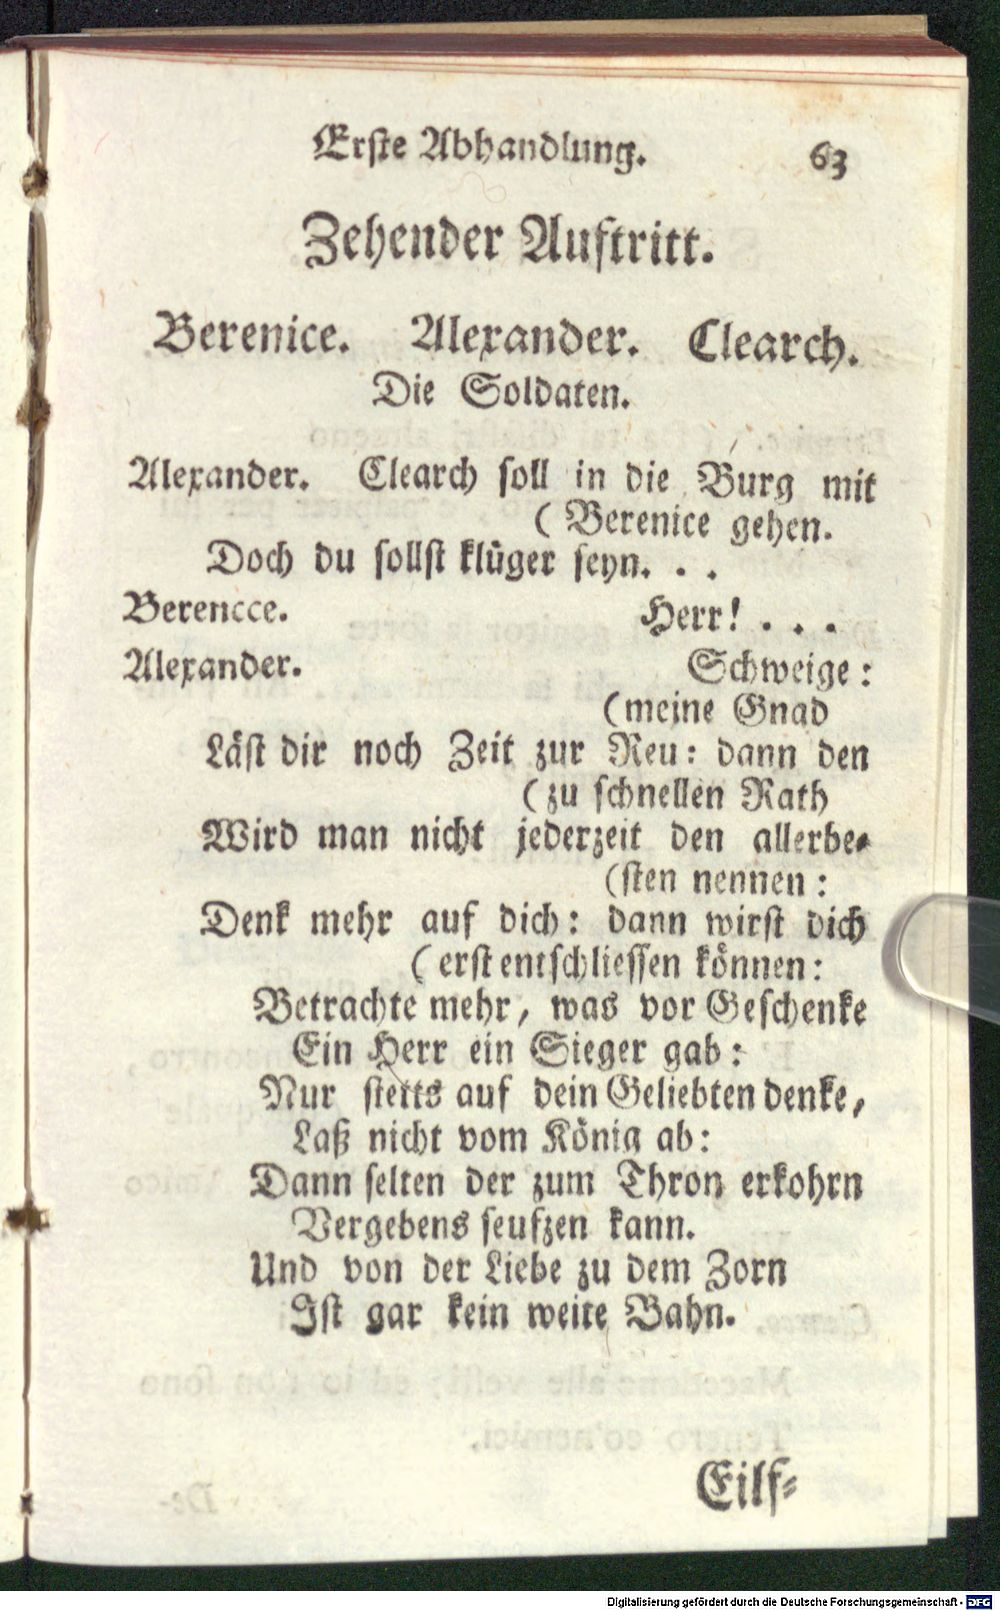 Erste Abhandlung. 63
Zehender Auftritt.
Berenice. Alexander. Clearch.
Die Soldaten.
Alexander. Clearch soll in die Burg mit
(Berenice gehen.
Doch du sollst klüger seyn. . .
Berencce. Herr! . . .
Alexander. Schweige:
(meine Gnad
Läst dir noch Zeit zur Reu: dann den
(zu schnellen Rath
Wird man nicht jederzeit den allerbe-
(sten nennen:
Denk mehr auf dich: dann wirst dich
(erst entschliessen können:
Betrachte mehr, was vor Geschenke
Ein Herr ein Sieger gab:
Nur stetts auf dein Geliebten denke,
Laß nicht vom König ab:
Dann selten der zum Thron erkohrn
Vergebens seufzen kann.
Und von der Liebe zu dem Zorn
Ist gar kein weite Bahn.
Eilf-
Digitalisierung gefördert durch die Deutsche Forschungsgemeinschaft - DFG